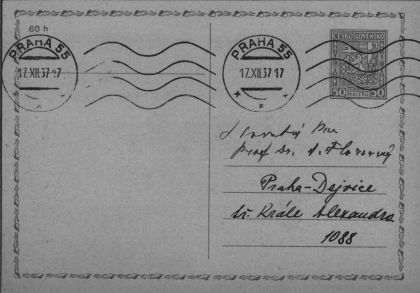 60 h
PRAHA 55
17.XII.37 17
PRAHA 55
17.XII.37 17
ČESKOSLOVENSKO
50 50
Prof. Dr. A. Florovský
Praha-Dejvice
tř. Krále Alexandra
1088